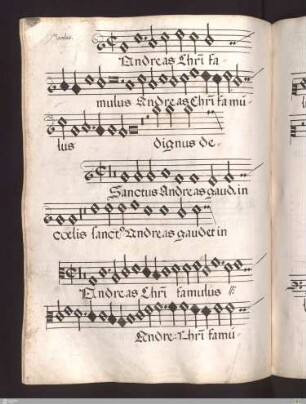 Andreas Chrī fa-
mulus Andreas Chrī famu-
lus dignus de-
Sanctus Andreas gaud. in
cœlis sanctꝰ Andreas gaudet in
Andreas Chrī famulus ij:
Andre: Chrī famu-